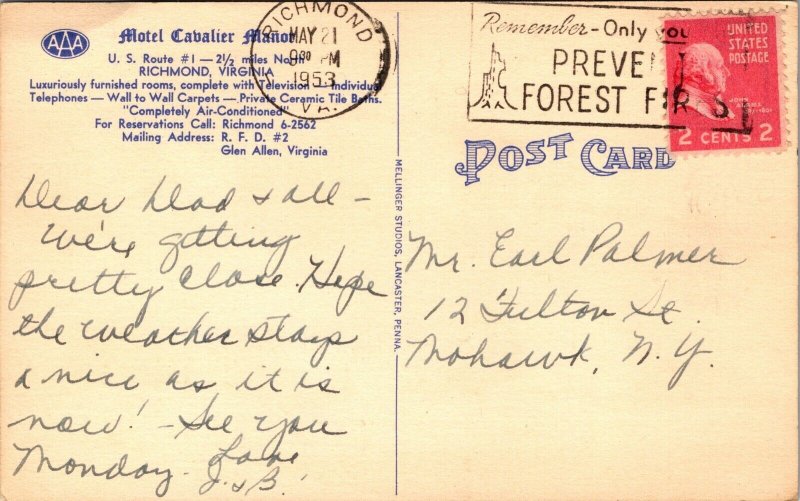 AAA
Motel Cavalier Manor
U. S. Route #1 — 2½ miles North
RICHMOND, VIRGINIA
Luxuriously furnished rooms, complete with Television — Individual
Telephones — Wall to Wall Carpets — Private Ceramic Tile Baths.
"Completely Air-Conditioned"
For Reservations Call: Richmond 6-2562
Mailing Address: R. F. D. #2
Glen Allen, Virginia
RICHMOND
MAY 21
9 30 M
1953
VA.
Remember - Only you
PREVE
FOREST FIRES
UNITED
STATES
POSTAGE
JOHN
ADAMS
2 CENTS 2
POST CARD
MELLINGER STUDIOS, LANCASTER, PENNA.
Dear Dad & all -
We're getting
pretty close. Hope
the weather stays
a nice as it is
now! - See you
Monday - Love
J. & B.
Mr. Earl Palmer
12 Fulton St.
Mohawk, N. Y.